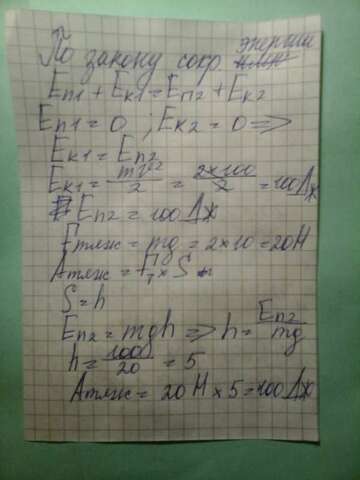 По закону сохр. энергии
Eп1 + Eк1 = Eп2 + Eк2
Eп1 = 0 ; Eк2 = 0 =>
Eк1 = Eп2
Eк1 = mv²/2 = 2×100/2 = 100 Дж
Eп2 = 100 Дж
Fтяж = mg = 2×10 = 20Н
Aтяж = Fт × S
S = h
Eп2 = mgh => h = Eп2/mg
h = 100/20 = 5
Aтяж = 20 Н × 5 = 100 Дж